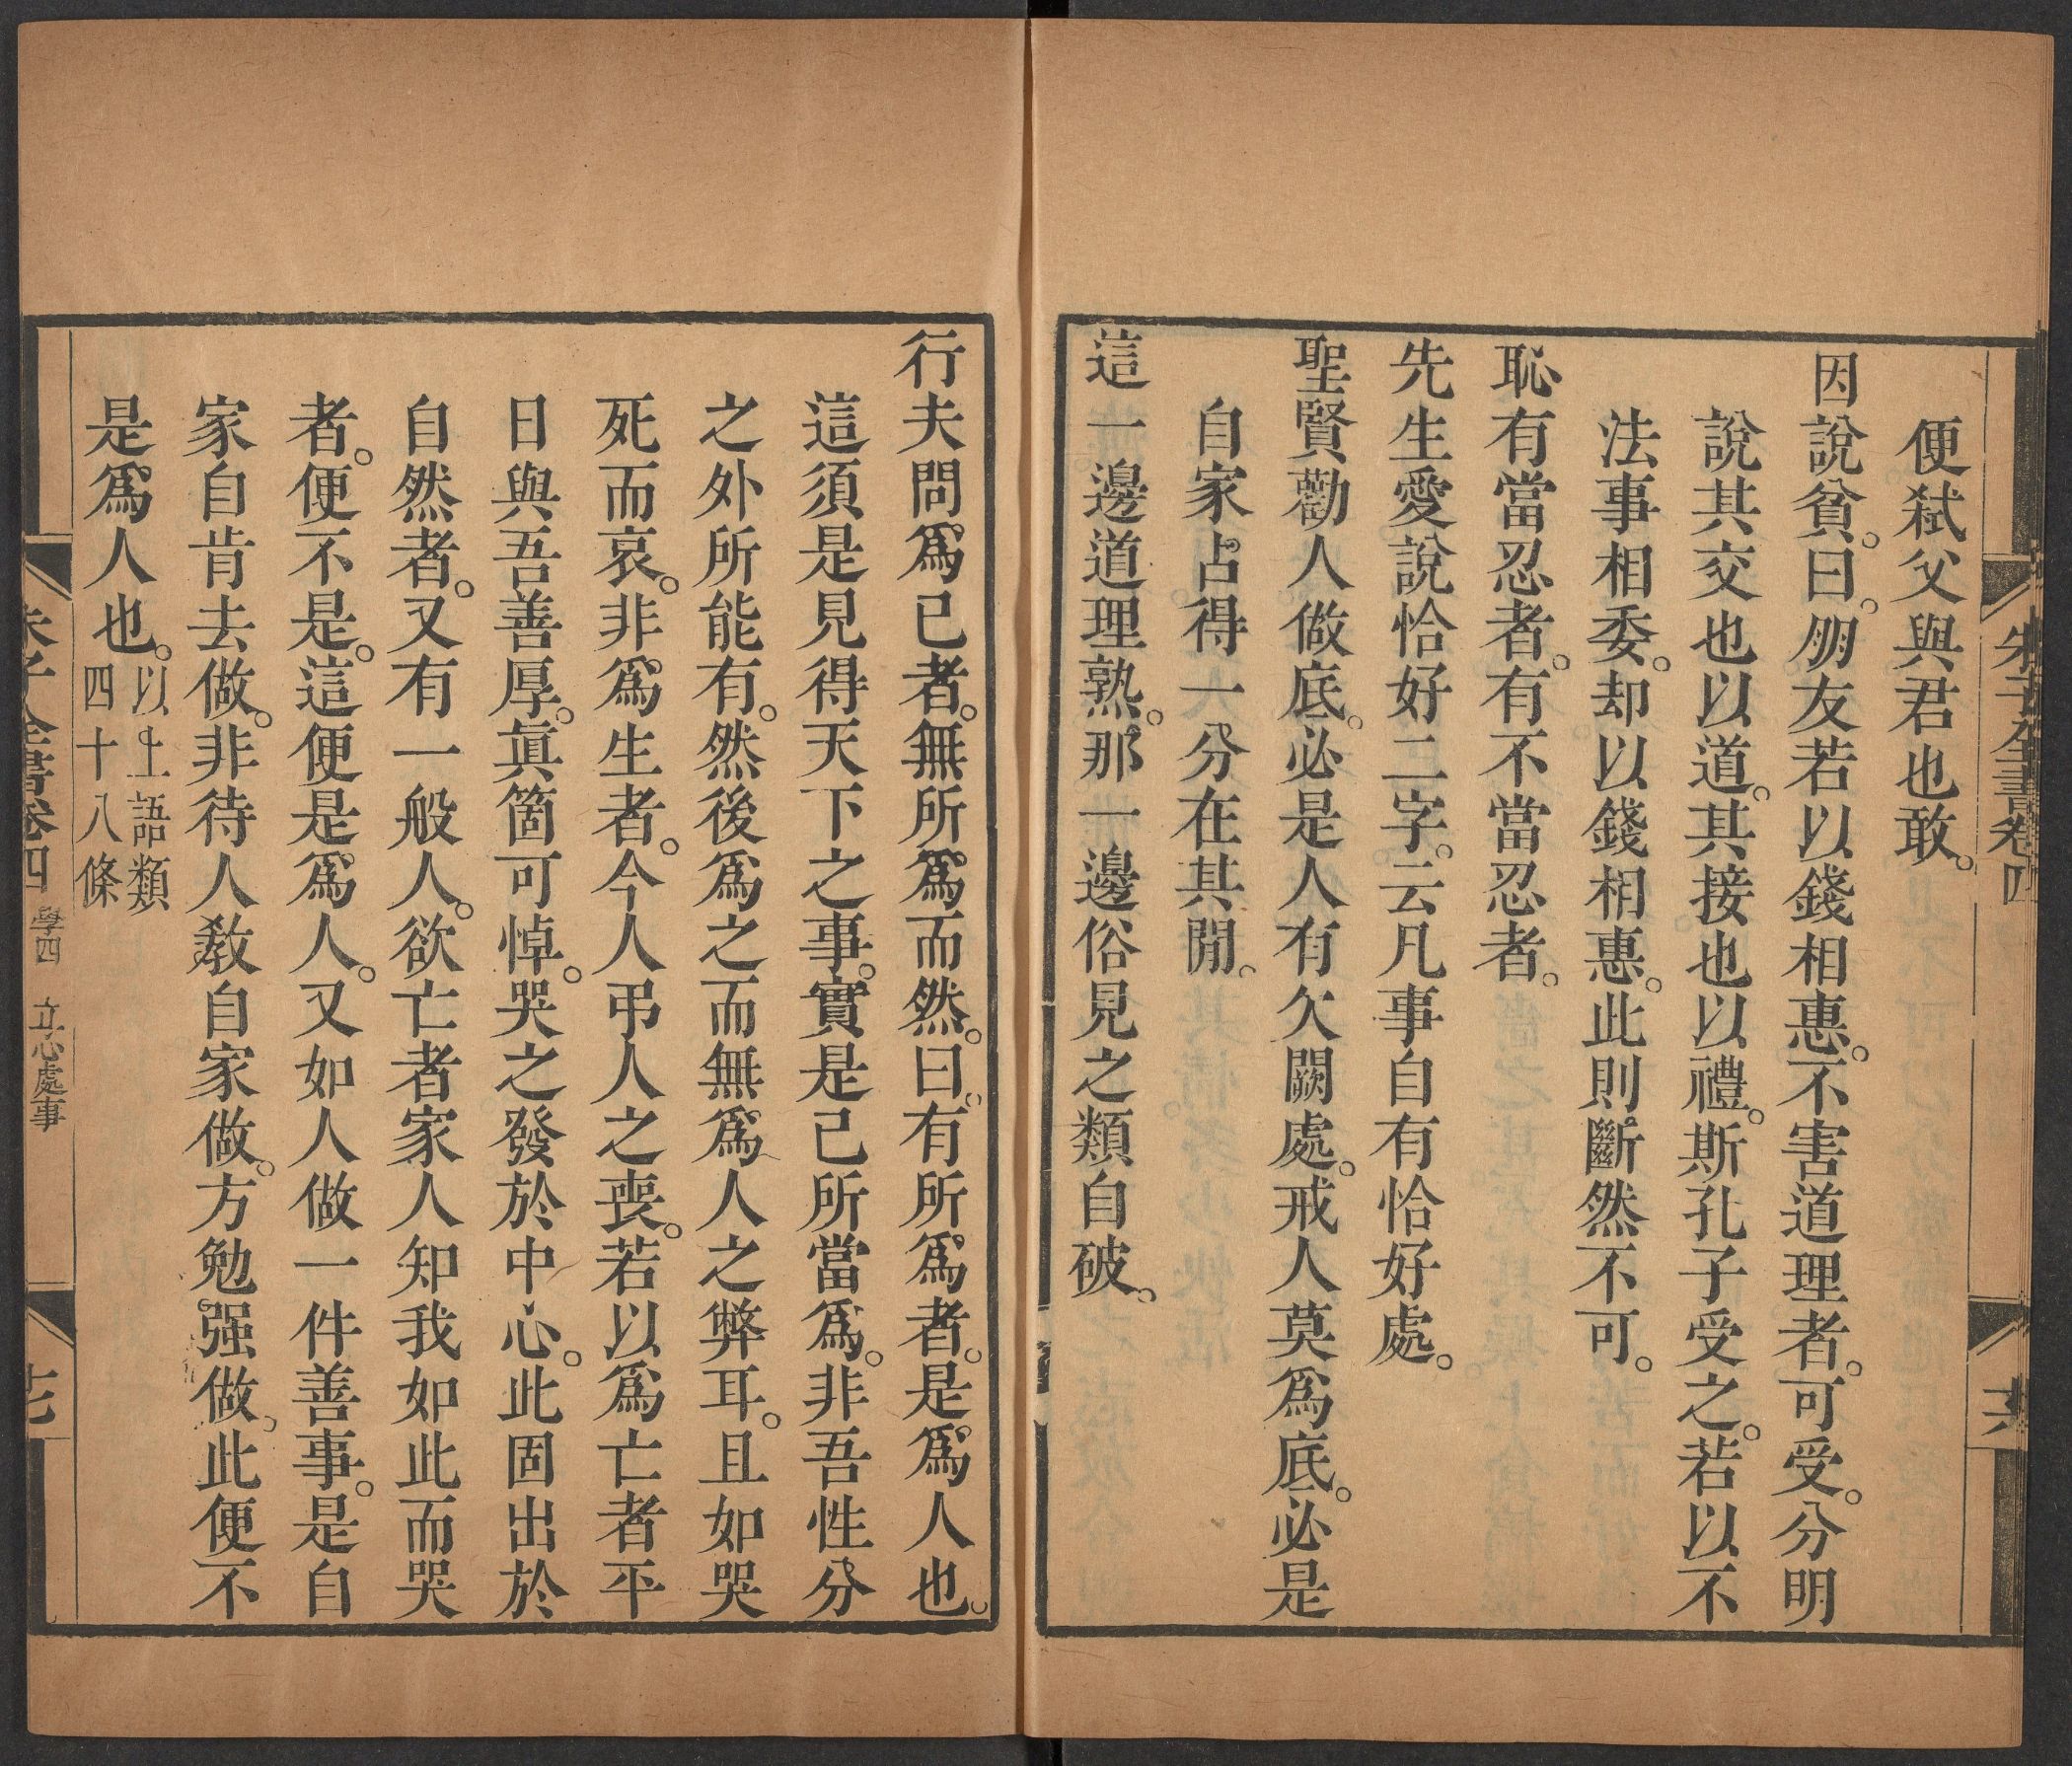 便弑父與君也敢。
因說貧。曰。朋友若以錢相惠。不害道理者。可受。分明
說其交也以道。其接也以禮。斯孔子受之。若以不
法事相委。却以錢相惠。此則斷然不可。
恥有當忍者。有不當忍者。
先生愛說恰好二字。云凡事自有恰好處。
聖賢勸人做底。必是人有欠闕處。戒人莫爲底。必是
自家占得一分在其閒。
這一邊道理熟。那一邊俗見之類自破。
朱子全書卷四
十六
行夫問爲已者。無所爲而然。曰。有所爲者。是爲人也。
這須是見得天下之事。實是己所當爲。非吾性分
之外所能有。然後爲之而無爲人之弊耳。且如哭
死而哀。非爲生者。今人弔人之喪。若以爲亡者平
日與吾善厚。眞箇可悼。哭之發於中心。此固出於
自然者。又有一般人。欲亡者家人知我如此而哭
者。便不是。這便是爲人。又如人做一件善事。是自
家自肯去做。非待人敎自家做。方勉强做。此便不
是爲人也。以上語類
四十八條
朱子全書卷四 學四 立心處事
十七